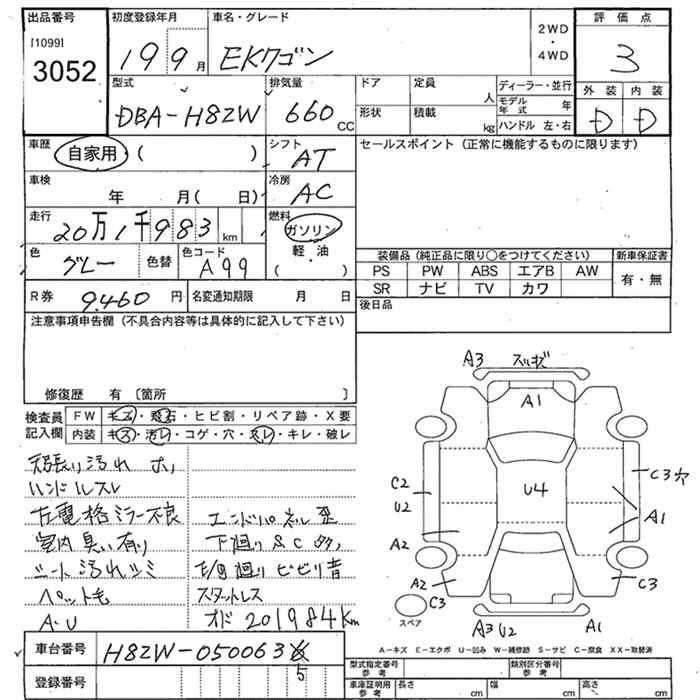 出品番号 初度登録年月 車名・グレード 2WD・4WD 評価点
[1099]
3052 19 9月 EKワゴン 3
型式 排気量 ドア 定員 人 ディーラー・並行 外装 内装
DBA-H82W 660 CC 形状 積載 kg モデル年式 年 ハンドル 左・右 D D
車歴 自家用・( ) シフト AT セールスポイント (正常に機能するものに限ります)
車検 年 月( 日) 冷房 AC
走行 20万1千983 km 燃料 ガソリン・軽・油 ( )
色 グレー 色替 色コード A99
装備品 (純正品に限り○をつけてください) 新車保証書
PS PW ABS エアB AW 有・無
SR ナビ TV カワ
R券 9.460 円 名変通知期限 月 日 後日品
注意事項申告欄 (不具合内容等は具体的に記入して下さい)
修復歴 有 〔箇所 〕
検査員記入欄 FW キズ・飛石・ヒビ割・リペア跡・X要
内装 キズ・汚レ・コゲ・穴・スレ・キレ・破レ
天張り汚れ ホリ
ハンドルスレ
左電格ミラー不良 エンドパネル歪
室内臭い有り 下廻りSC多
シート汚れシミ ビビリ音
ペット毛 スタットレス
A・U オド 201984km
車台番号 H82W-050063 5
登録番号
A3 スリキズ
A1
U4
C2
U2
A2
A2
C3
スペア
A3 U2
A1
C3
A1
C3穴
A-キズ E-エクボ U-凹み W-補修跡 S-サビ C-腐食 XX-取替済
型式指定番号 参考 類別区分番号 参考
車庫証明用 参考 長さ cm 幅 cm 高さ cm